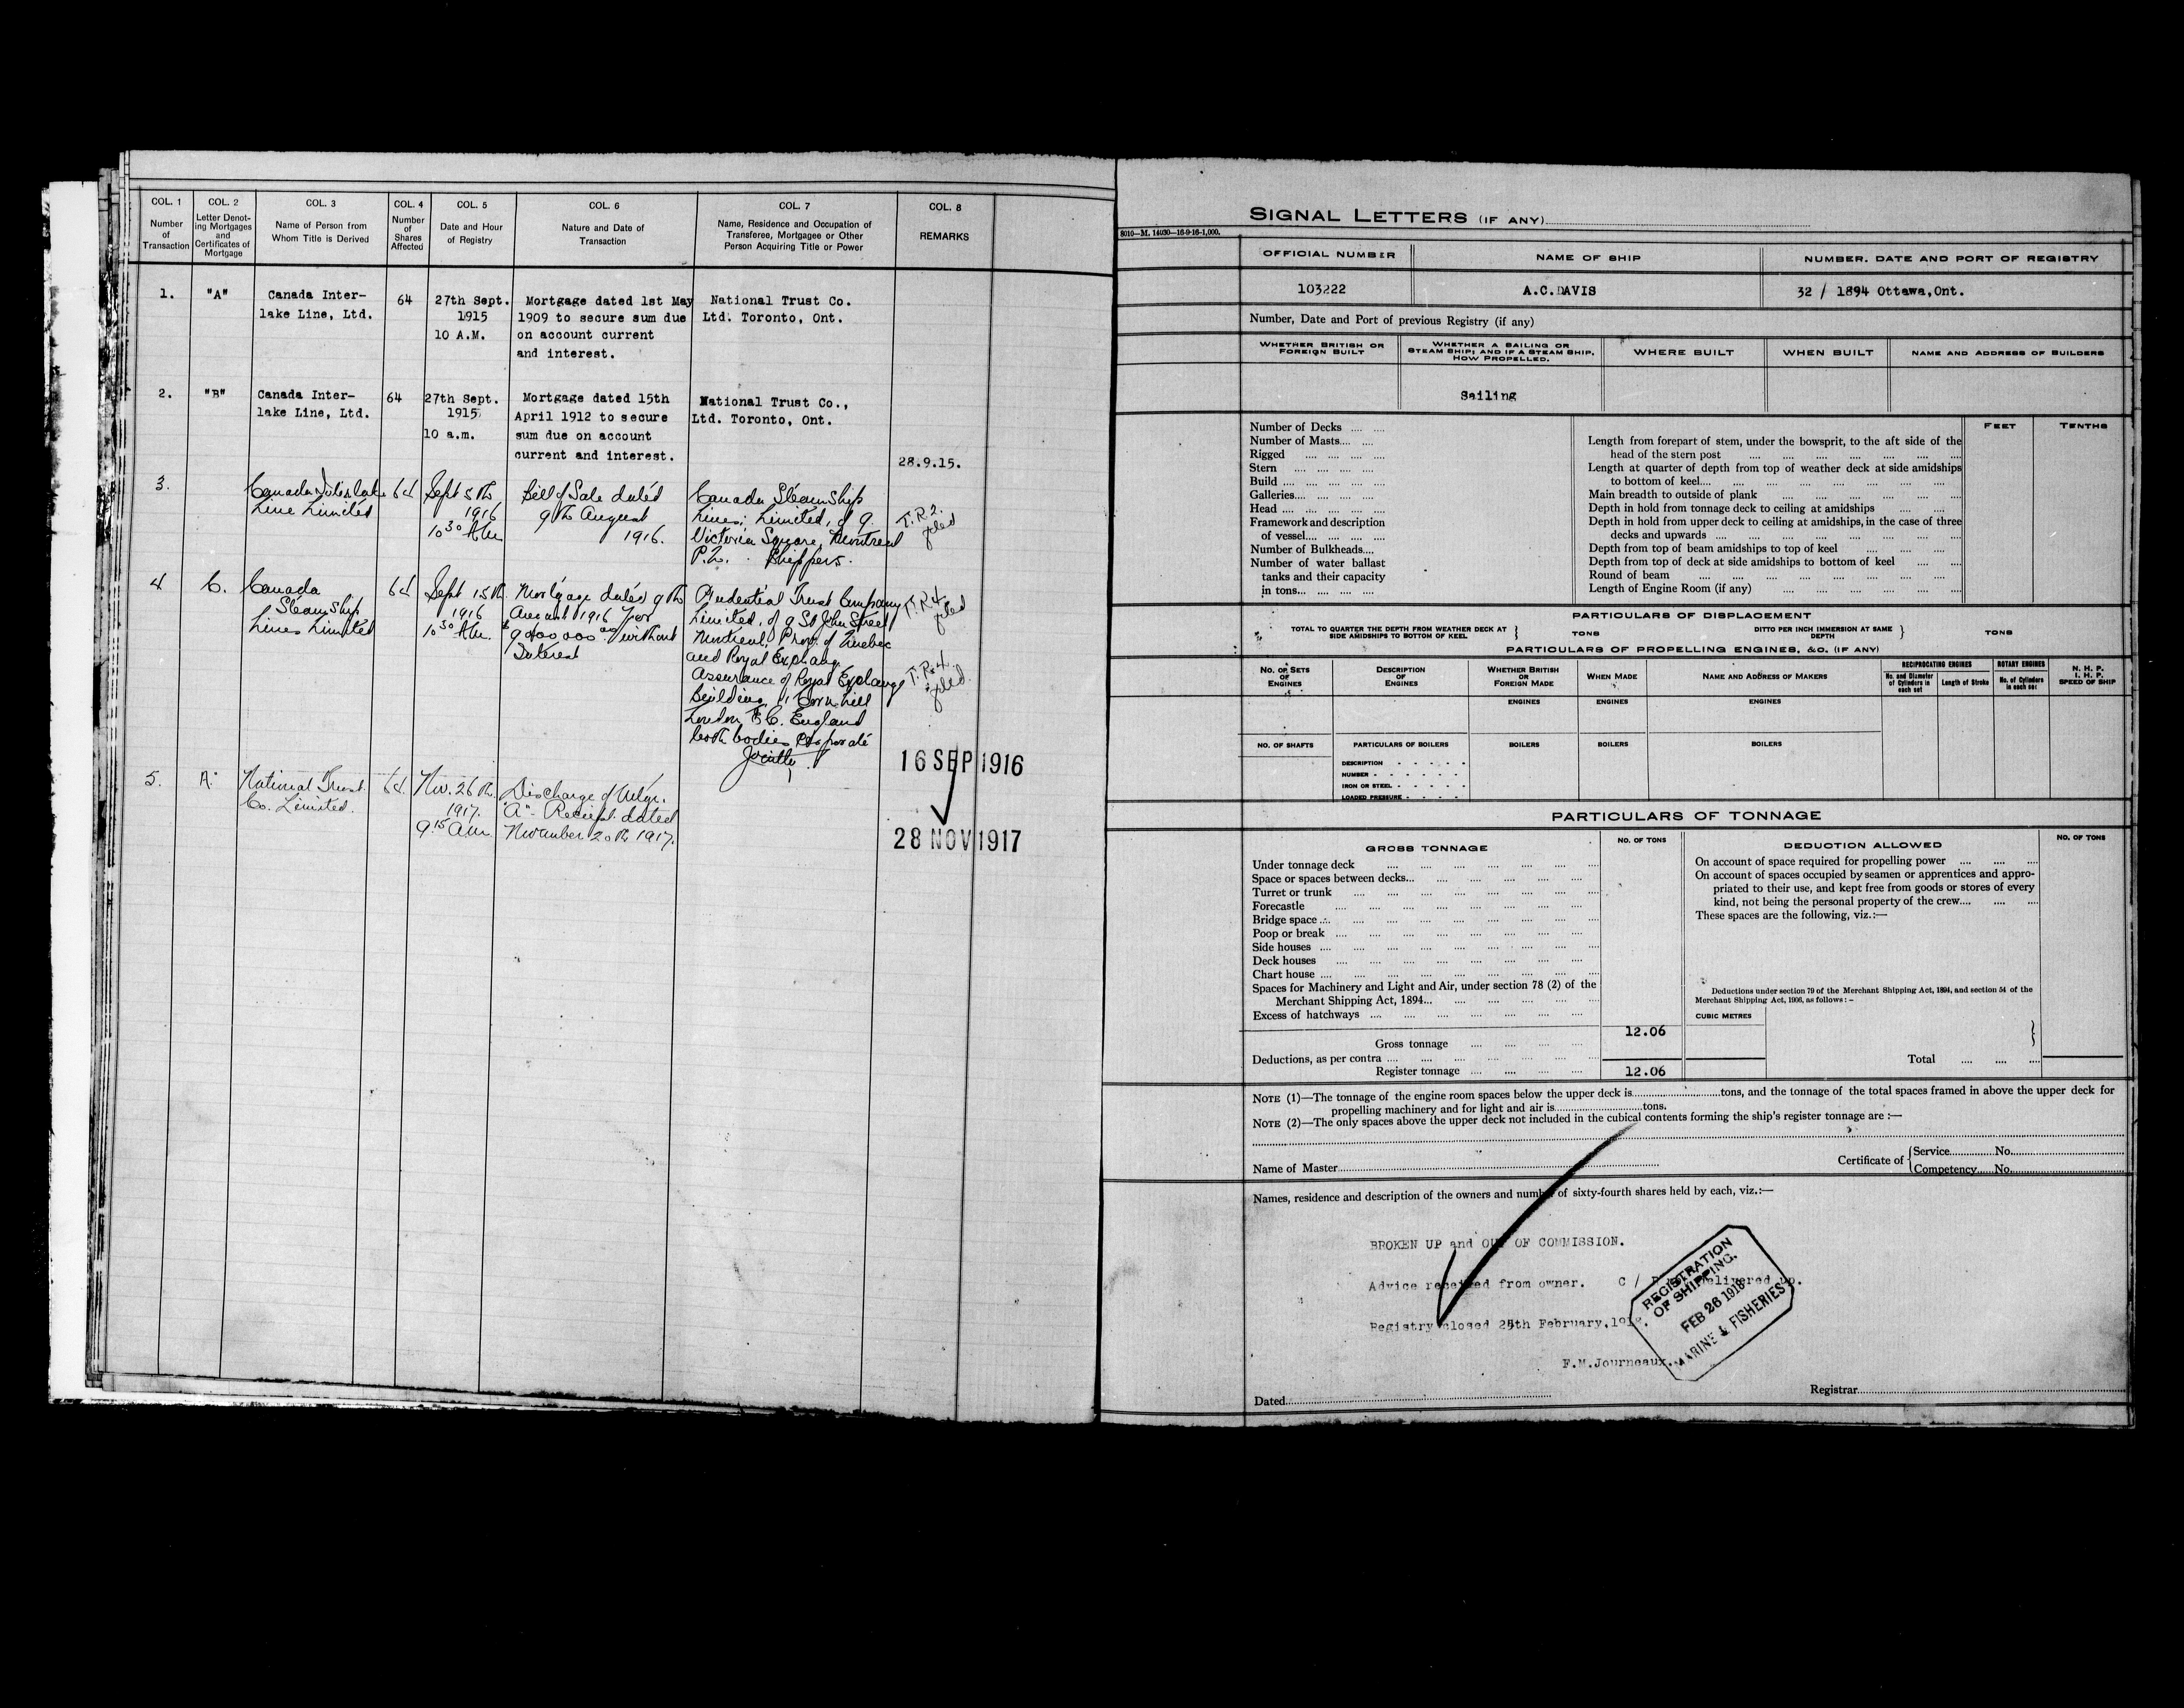 COL. 1
Number
of
Transaction
COL. 2
Letter Denot-
ing Mortgages
and
Certificates of
Mortgage
COL. 3
Name of Person from
Whom Title is Derived
COL. 4
Number
of
Shares
Affected
COL. 5
Date and Hour
of Registry
COL. 6
Nature and Date of
Transaction
COL. 7
Name, Residence and Occupation of
Transferee, Mortgagee or Other
Person Acquiring Title or Power
COL. 8
REMARKS
1.
"A"
Canada Inter-
lake Line, Ltd.
64
27th Sept.
1915
10 A.M.
Mortgage dated 1st May
1909 to secure sum due
on account current
and interest.
National Trust Co.
Ltd. Toronto, Ont.
2.
"B"
Canada Inter-
lake Line, Ltd.
64
27th Sept.
1915
10 a.m.
Mortgage dated 15th
April 1912 to secure
sum due on account
current and interest.
National Trust Co.,
Ltd. Toronto, Ont.
28.9.15.
3.
Canada Interlake
Line Limited
64
Sept 5th
1916
10 30 AM
Bill of Sale dated
9th August
1916.
Canada Steamship
Lines, Limited, of 9
Victoria Square, Montreal
P.Q. Shippers.
T.R.2.
filed
4
C.
Canada
Steamship
Lines Limited
64
Sept 15th
1916
10 30 AM.
Mortgage dated 9th
August 1916 for
without
Interest
Prudential Trust Company
Limited, of 9 St John Street
Montreal, Prov. of Quebec
and Royal Exchange
Assurance of Royal Exchange
Building, Cornhill
London E.C. England
both bodies Corporate
Jointly
T.R.4
filed
T.R.4.
filed.
16 SEP 1916
5.
A.
National Trust
Co. Limited.
64
Nov. 26th
1917.
9 15 AM
Discharge of Mtge.
"A" Receipt dated
November 20th 1917.
28 NOV 1917
SIGNAL LETTERS (IF ANY)
8010—M. 14030—16-9-16-1,000.
OFFICIAL NUMBER
NAME OF SHIP
NUMBER, DATE AND PORT OF REGISTRY
103222
A.C.DAVIS
32 / 1894 Ottawa,Ont.
Number, Date and Port of previous Registry (if any)
WHETHER BRITISH OR
FOREIGN BUILT
WHETHER A SAILING OR
STEAM SHIP; AND IF A STEAM SHIP,
HOW PROPELLED.
WHERE BUILT
WHEN BUILT
NAME AND ADDRESS OF BUILDERS
Sailing
Number of Decks
Number of Masts
Rigged
Stern
Build
Galleries
Head
Framework and description
of vessel
Number of Bulkheads
Number of water ballast
tanks and their capacity
in tons
FEET
TENTHS
Length from forepart of stem, under the bowsprit, to the aft side of the
head of the stern post
Length at quarter of depth from top of weather deck at side amidships
to bottom of keel
Main breadth to outside of plank
Depth in hold from tonnage deck to ceiling at amidships
Depth in hold from upper deck to ceiling at amidships, in the case of three
decks and upwards
Depth from top of beam amidships to top of keel
Depth from top of deck at side amidships to bottom of keel
Round of beam
Length of Engine Room (if any)
PARTICULARS OF DISPLACEMENT
TOTAL TO QUARTER THE DEPTH FROM WEATHER DECK AT
SIDE AMIDSHIPS TO BOTTOM OF KEEL
TONS
DITTO PER INCH IMMERSION AT SAME
DEPTH
TONS
PARTICULARS OF PROPELLING ENGINES, &C. (IF ANY)
NO. OF SETS
OF
ENGINES
DESCRIPTION
OF
ENGINES
WHETHER BRITISH
OR
FOREIGN MADE
WHEN MADE
NAME AND ADDRESS OF MAKERS
RECIPROCATING ENGINES
No. and Diameter
of Cylinders in
each set
Length of Stroke
ROTARY ENGINES
No. of Cylinders
in each set
N. H. P.
I. H. P.
SPEED OF SHIP
ENGINES
ENGINES
ENGINES
NO. OF SHAFTS
PARTICULARS OF BOILERS
BOILERS
BOILERS
BOILERS
DESCRIPTION
NUMBER
IRON OR STEEL
LOADED PRESSURE
PARTICULARS OF TONNAGE
GROSS TONNAGE
NO. OF TONS
DEDUCTION ALLOWED
NO. OF TONS
Under tonnage deck
Space or spaces between decks
Turret or trunk
Forecastle
Bridge space
Poop or break
Side houses
Deck houses
Chart house
Spaces for Machinery and Light and Air, under section 78 (2) of the
Merchant Shipping Act, 1894
Excess of hatchways
Gross tonnage
12.06
Deductions, as per contra
Register tonnage
12.06
On account of space required for propelling power
On account of spaces occupied by seamen or apprentices and appro-
priated to their use, and kept free from goods or stores of every
kind, not being the personal property of the crew
These spaces are the following, viz.:—
Deductions under section 79 of the Merchant Shipping Act, 1894, and section 54 of the
Merchant Shipping Act, 1906, as follows:—
CUBIC METRES
Total
NOTE (1)—The tonnage of the engine room spaces below the upper deck is tons, and the tonnage of the total spaces framed in above the upper deck for
propelling machinery and for light and air is tons.
NOTE (2)—The only spaces above the upper deck not included in the cubical contents forming the ship's register tonnage are:—
Name of Master
Certificate of
Service No.
Competency No.
Names, residence and description of the owners and number of sixty-fourth shares held by each, viz.:—
BROKEN UP and OUT OF COMMISSION.
Advice received from owner. C / delivered up.
Registry closed 25th February,1918.
F.M.Journeaux.
REGISTRATION
OF SHIPPING.
FEB 26 1918
MARINE & FISHERIES
Dated
Registrar